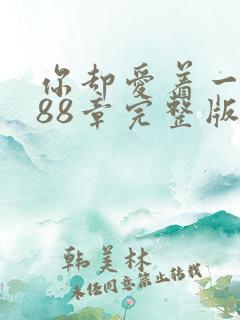 你却爱着一
88章完整版
韩美林
未经同意禁止转载